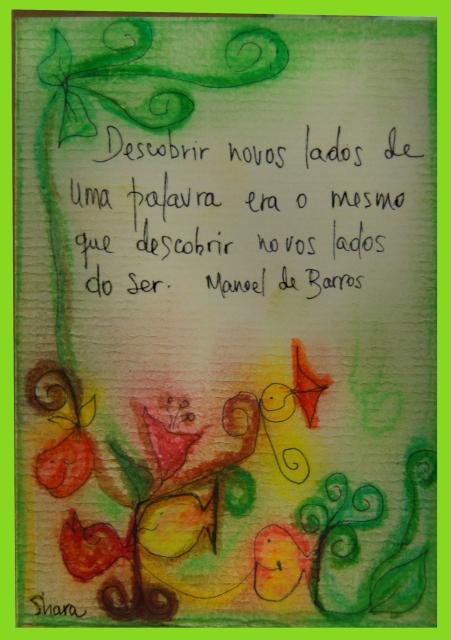 Descobrir novos lados de
uma palavra era o mesmo
que descobrir novos lados
do ser. Manoel de Barros
Shara